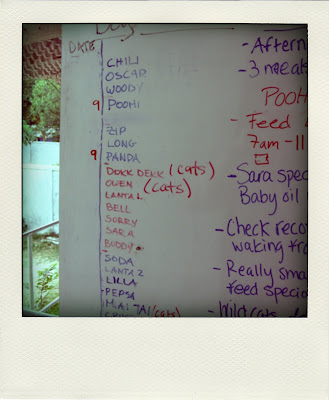 DATE
CHILI
OSCAR
WOODY
9 POOHI
ZIP
LONG
9 PANDA
DOKK DEKK (cats)
OWEN (cats)
LANTA 1
BELL
SORRY
SARA
BUDDY
SODA
LANTA 2
LILLA
PEPSA
MAI-TAI (cats)
- Aftern
- 3 meals
POOH
- Feed
7am - 11
- Sara spec
Baby oil
- Check reco
waking fro
- Really sma
feed specia
- Wild cats